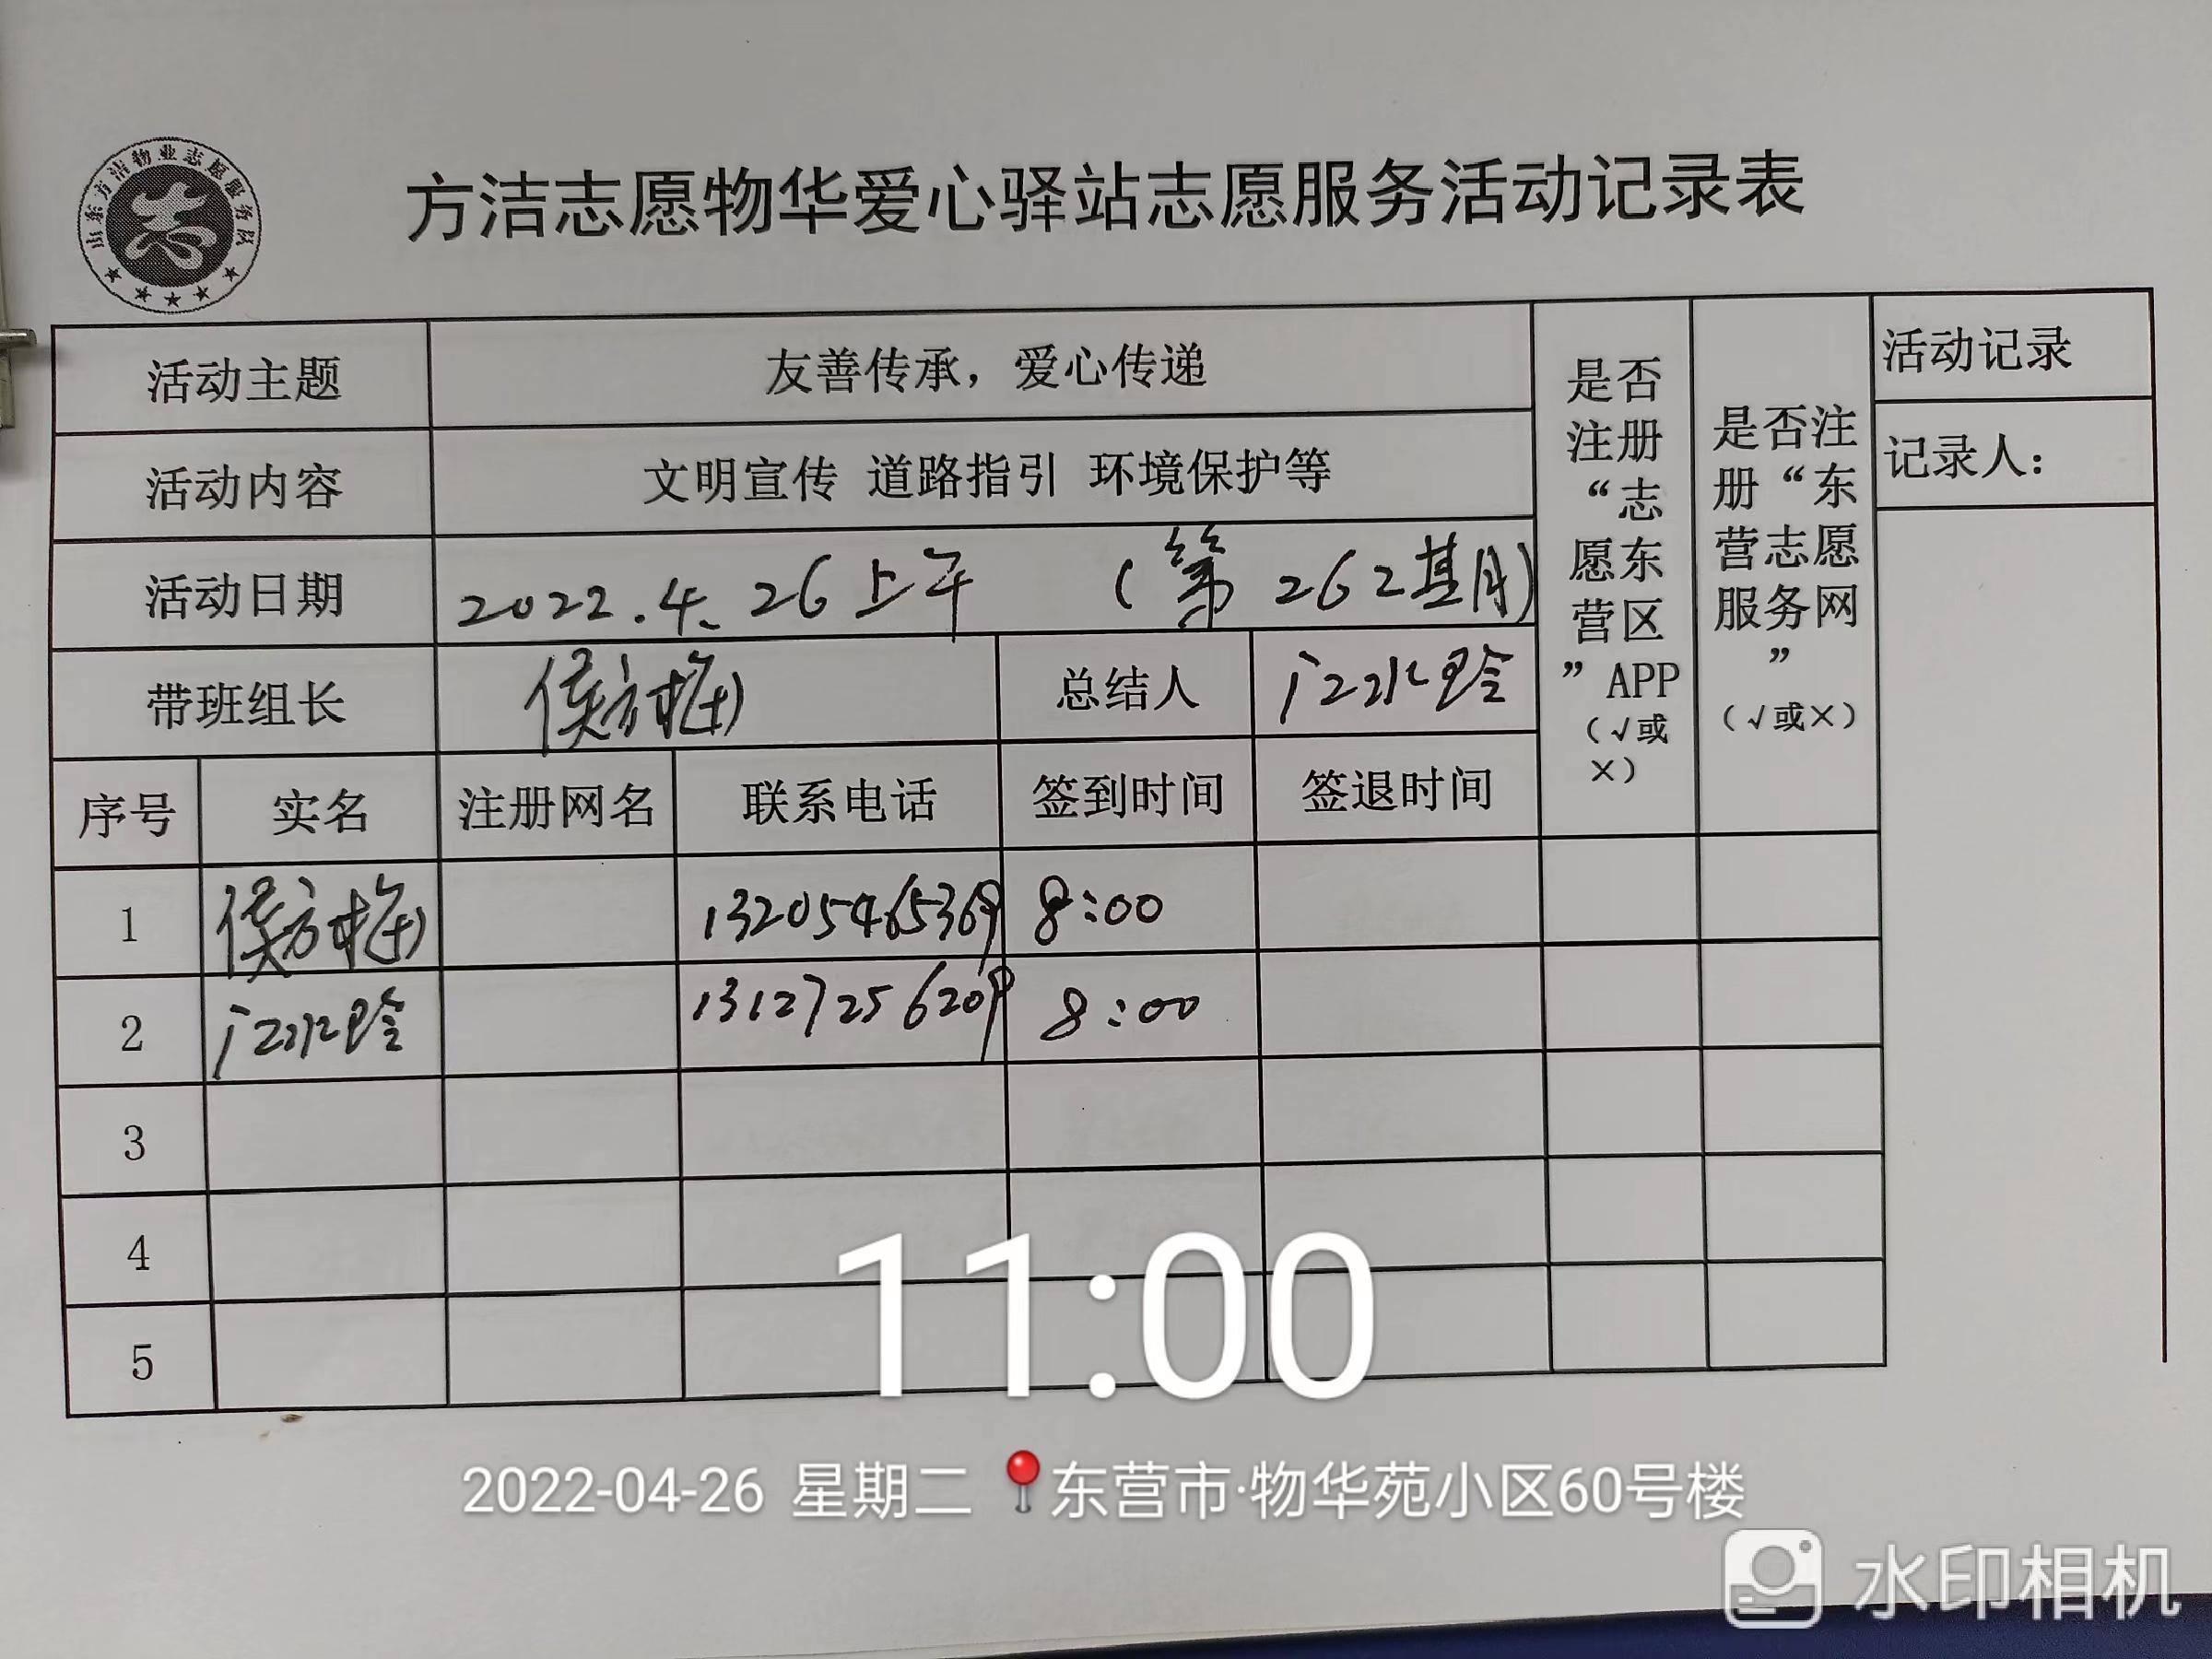 山东方洁物业志愿服务队
方洁志愿物华爱心驿站志愿服务活动记录表
活动主题 友善传承，爱心传递
活动内容 文明宣传 道路指引 环境保护等
活动日期 2022.4.26上午 (第262期)
带班组长 侯方梅 总结人 江冰玲
序号 实名 注册网名 联系电话 签到时间 签退时间
是否
注册
“志
愿东
营区
”APP
(√或
×)
是否注
册“东
营志愿
服务网
”
(√或×)
活动记录
记录人：
1 侯方梅 13205465369 8:00
2 江冰玲 13127256209 8:00
3
4
5
11:00
2022-04-26 星期二 东营市·物华苑小区60号楼
水印相机